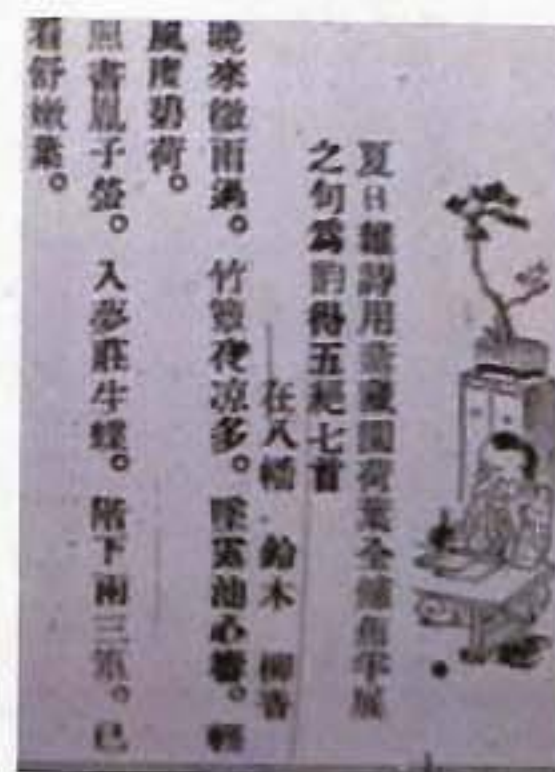 夏日雜詩用藏園荷葉全魚展
之句爲韵得五絕七首
在八幡 鈴木 柳香
晩來微雨過。竹簟夜凉多。墜露池心響。輕
風度碧荷。
照書胤子螢。入夢莊生蝶。階下兩三。已
看舒嫩葉。